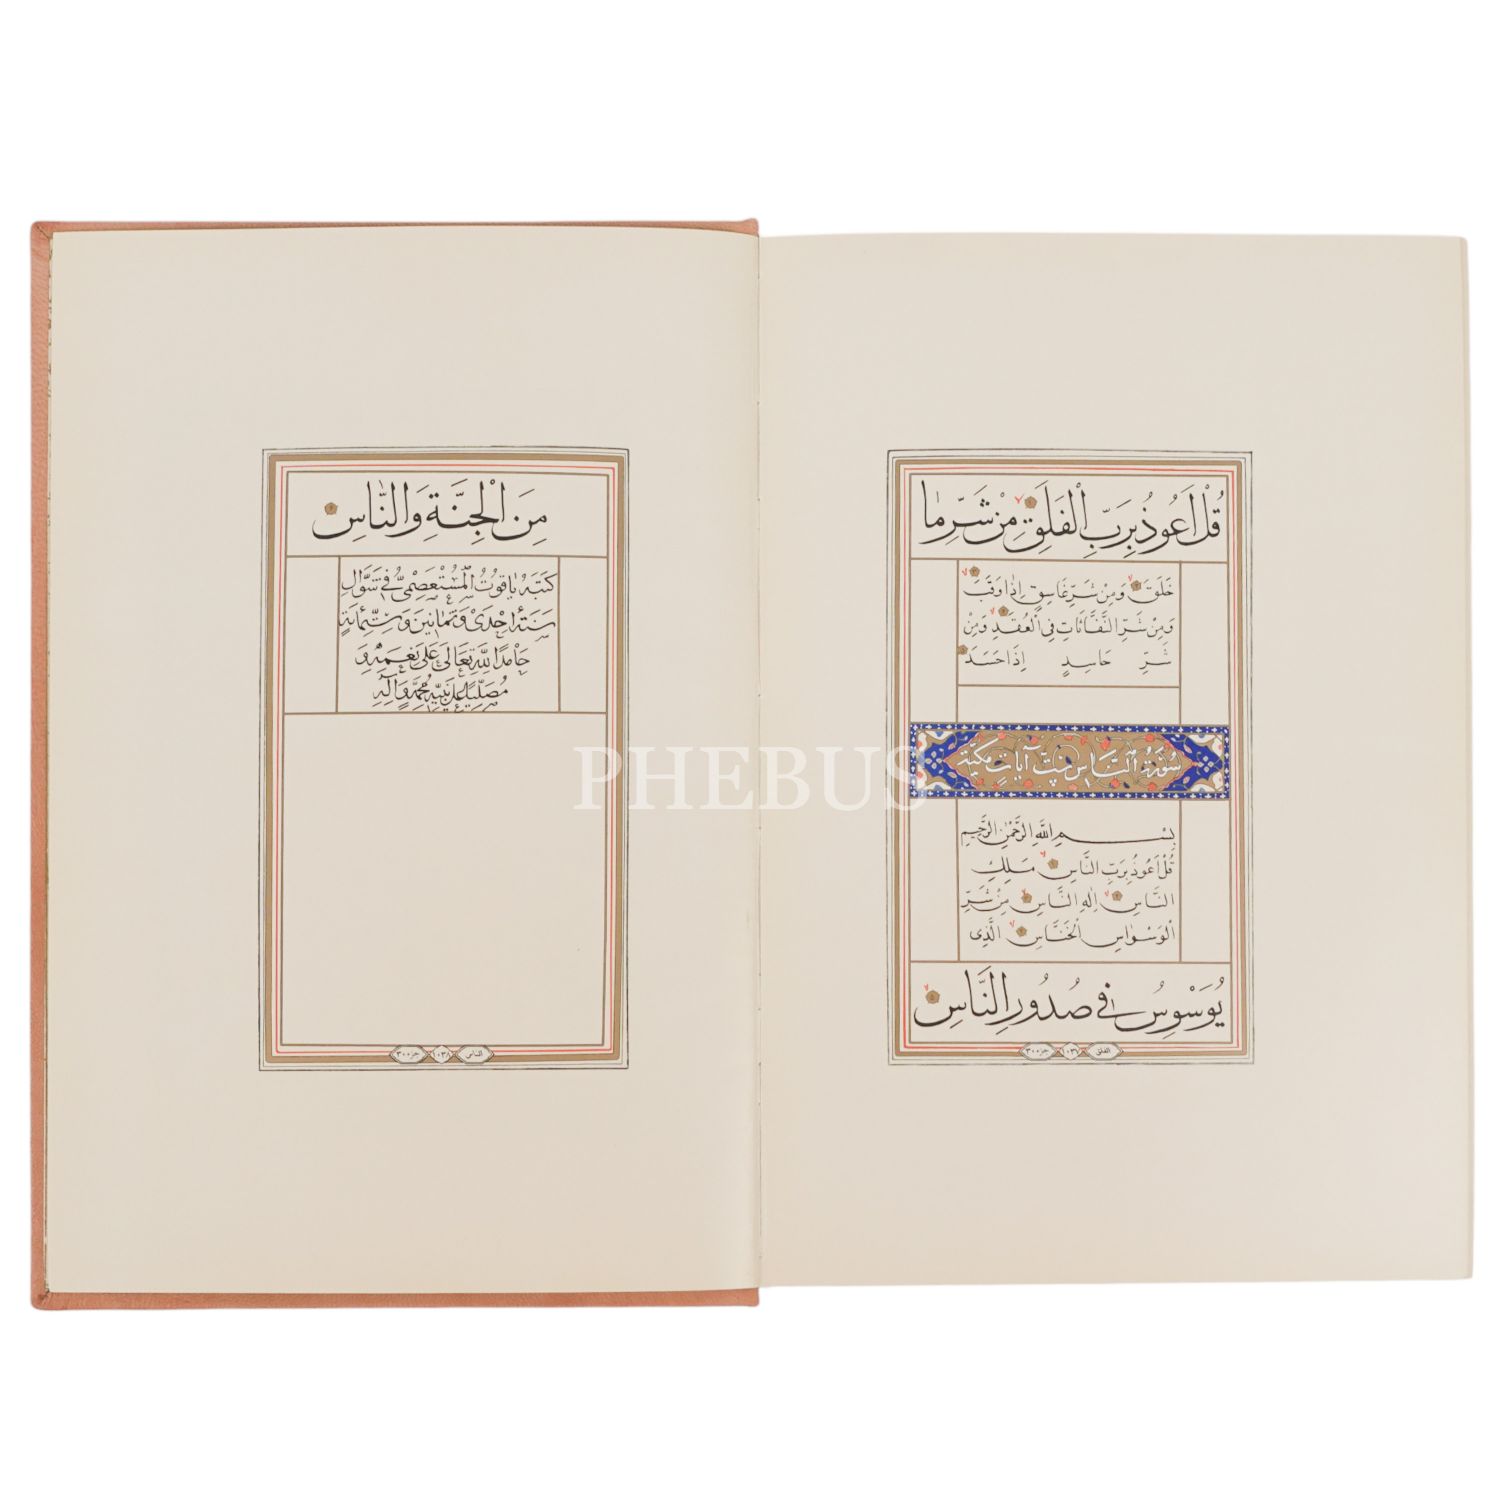 قُلْ اَعُوذُ بِرَبِّ الْفَلَقِ ١ مِنْ شَرِّ مَا
خَلَقَ ٢ وَمِنْ شَرِّ غَاسِقٍ اِذَا وَقَبَ ٣
وَمِنْ شَرِّ النَّفَّاثَاتِ فِي الْعُقَدِ ٤ وَمِنْ
شَرِّ حَاسِدٍ اِذَا حَسَدَ ٥
سُورَةُ النَّاسِ سِتُّ آيَاتٍ مَكِّيَّةٌ
بِسْمِ اللّٰهِ الرَّحْمٰنِ الرَّحِيمِ
قُلْ اَعُوذُ بِرَبِّ النَّاسِ ١ مَلِكِ
النَّاسِ ٢ اِلٰهِ النَّاسِ ٣ مِنْ شَرِّ
الْوَسْوَاسِ الْخَنَّاسِ ٤ الَّذِي
يُوَسْوِسُ فِي صُدُورِ النَّاسِ ٥
الفلق جزء ٣٠
مِنَ الْجِنَّةِ وَالنَّاسِ ٦
كَتَبَهُ يَاقُوتُ الْمُسْتَعْصِمِيُّ فِي شَوَّالِ
سَنَةِ اِحْدَى وَثَمَانِينَ وَسِتِّمِائَةٍ
حَامِدًا لِلّٰهِ تَعَالَى عَلَى نِعَمِهِ وَ
مُصَلِّيًا عَلَى نَبِيِّهِ مُحَمَّدٍ وَآلِهِ
الناس ١٠٣٨ جزء ٣٠
PHEBUS